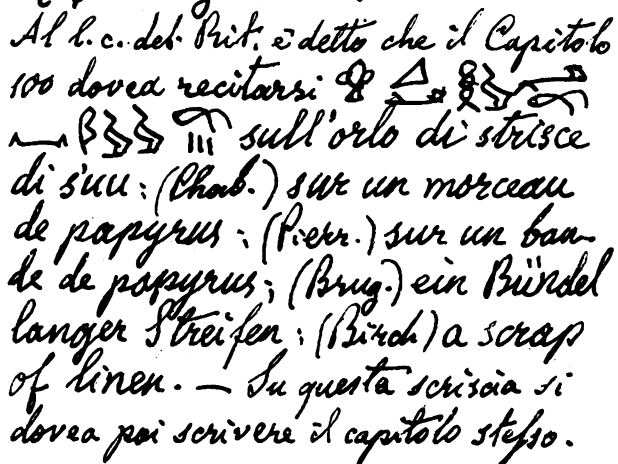 Al l. c. del Rit. è detto che il Capitolo
100 dovea recitarsi
sull'orlo di strisce
di s'uu: (Chab.) sur un morceau
de papyrus; (Pierr.) sur un ban-
de de papyrus; (Brug.) ein Bündel
langer Streifen; (Birch) a scrap
of linen. — Su questa scriscia si
dovea poi scrivere il capitolo stesso.